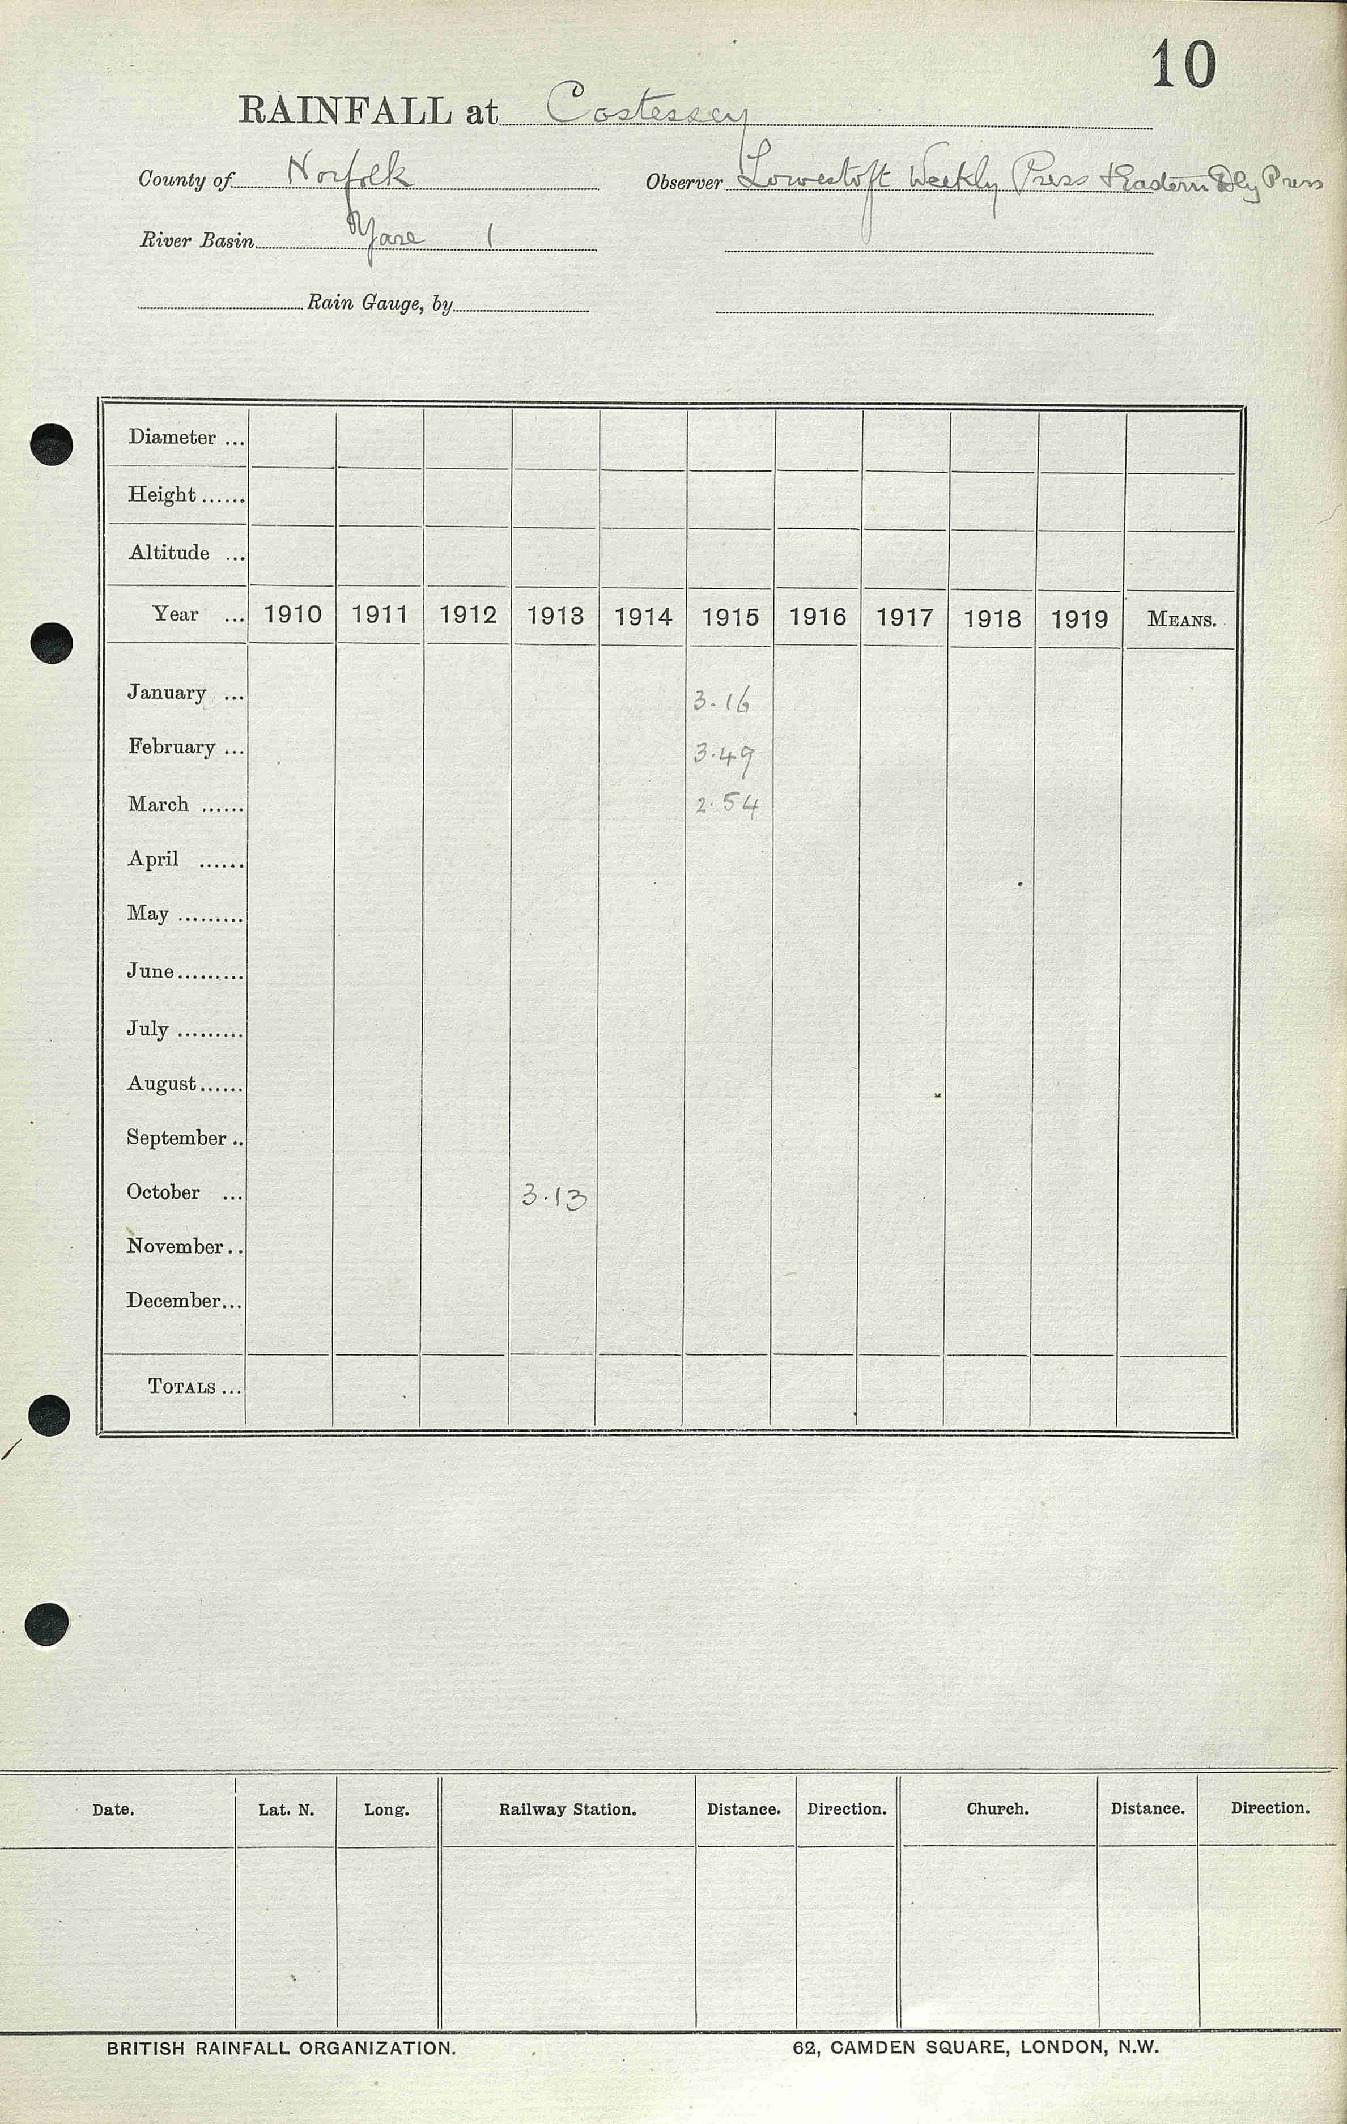 10
RAINFALL at Costessey
County of Norfolk Observer Lowestoft Weekly Press & Eastern Dly Press
River Basin Yare 1
Rain Gauge, by
Diameter ...
Height ......
Altitude ...
Year ... 1910 1911 1912 1913 1914 1915 1916 1917 1918 1919 MEANS.
January ... 3.16
February ... 3.49
March ...... 2.54
April ......
May .........
June.........
July .........
August......
September ..
October ... 3.13
November..
December...
TOTALS ...
Date. Lat. N. Long. Railway Station. Distance. Direction. Church. Distance. Direction.
BRITISH RAINFALL ORGANIZATION. 62, CAMDEN SQUARE, LONDON, N.W.